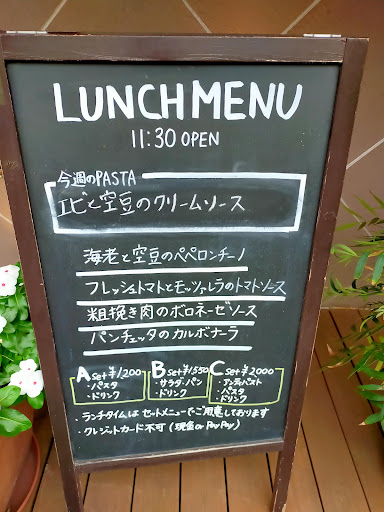 LUNCH MENU
11:30 OPEN
今週のPASTA
エビと空豆のクリームソース
海老と空豆のペペロンチーノ
フレッシュトマトとモッツァレラのトマトソース
粗挽き肉のボロネーゼソース
パンチェッタのカルボナーラ
A set ¥1,200
・パスタ
・ドリンク
B set ¥1,550
・サラダ・パン
・ドリンク
C set ¥2,000
・アンティパスト
・パスタ
・ドリンク
・ランチタイムはセットメニューでご用意しております
・クレジットカード不可(現金or PayPay)